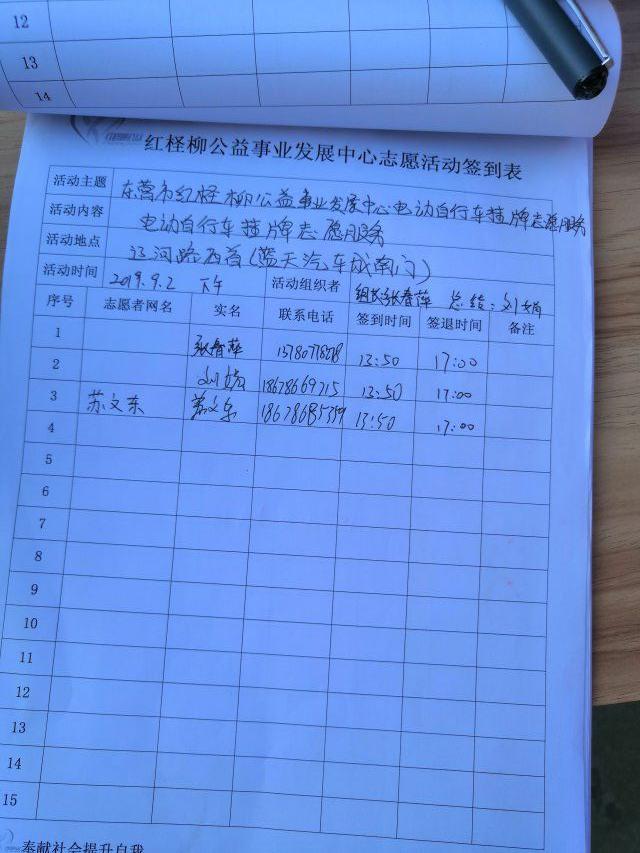 12
13
14
红柽柳公益事业发展中心志愿活动签到表
活动主题 东营市红柽柳公益事业发展中心电动自行车挂牌志愿服务
活动内容 电动自行车挂牌志愿服务
活动地点 辽河路西首(蓝天汽车城南门)
活动时间 2019.9.2 下午 活动组织者 组长:张春萍 总结:刘娟
序号 志愿者网名 实名 联系电话 签到时间 签退时间 备注
1 张春萍 13:50 17:00
2 刘娟 18678669715 13:50 17:00
3 苏文东 苏文东 13:50 17:00
4
5
6
7
8
9
10
11
12
13
14
15
奉献社会提升自我